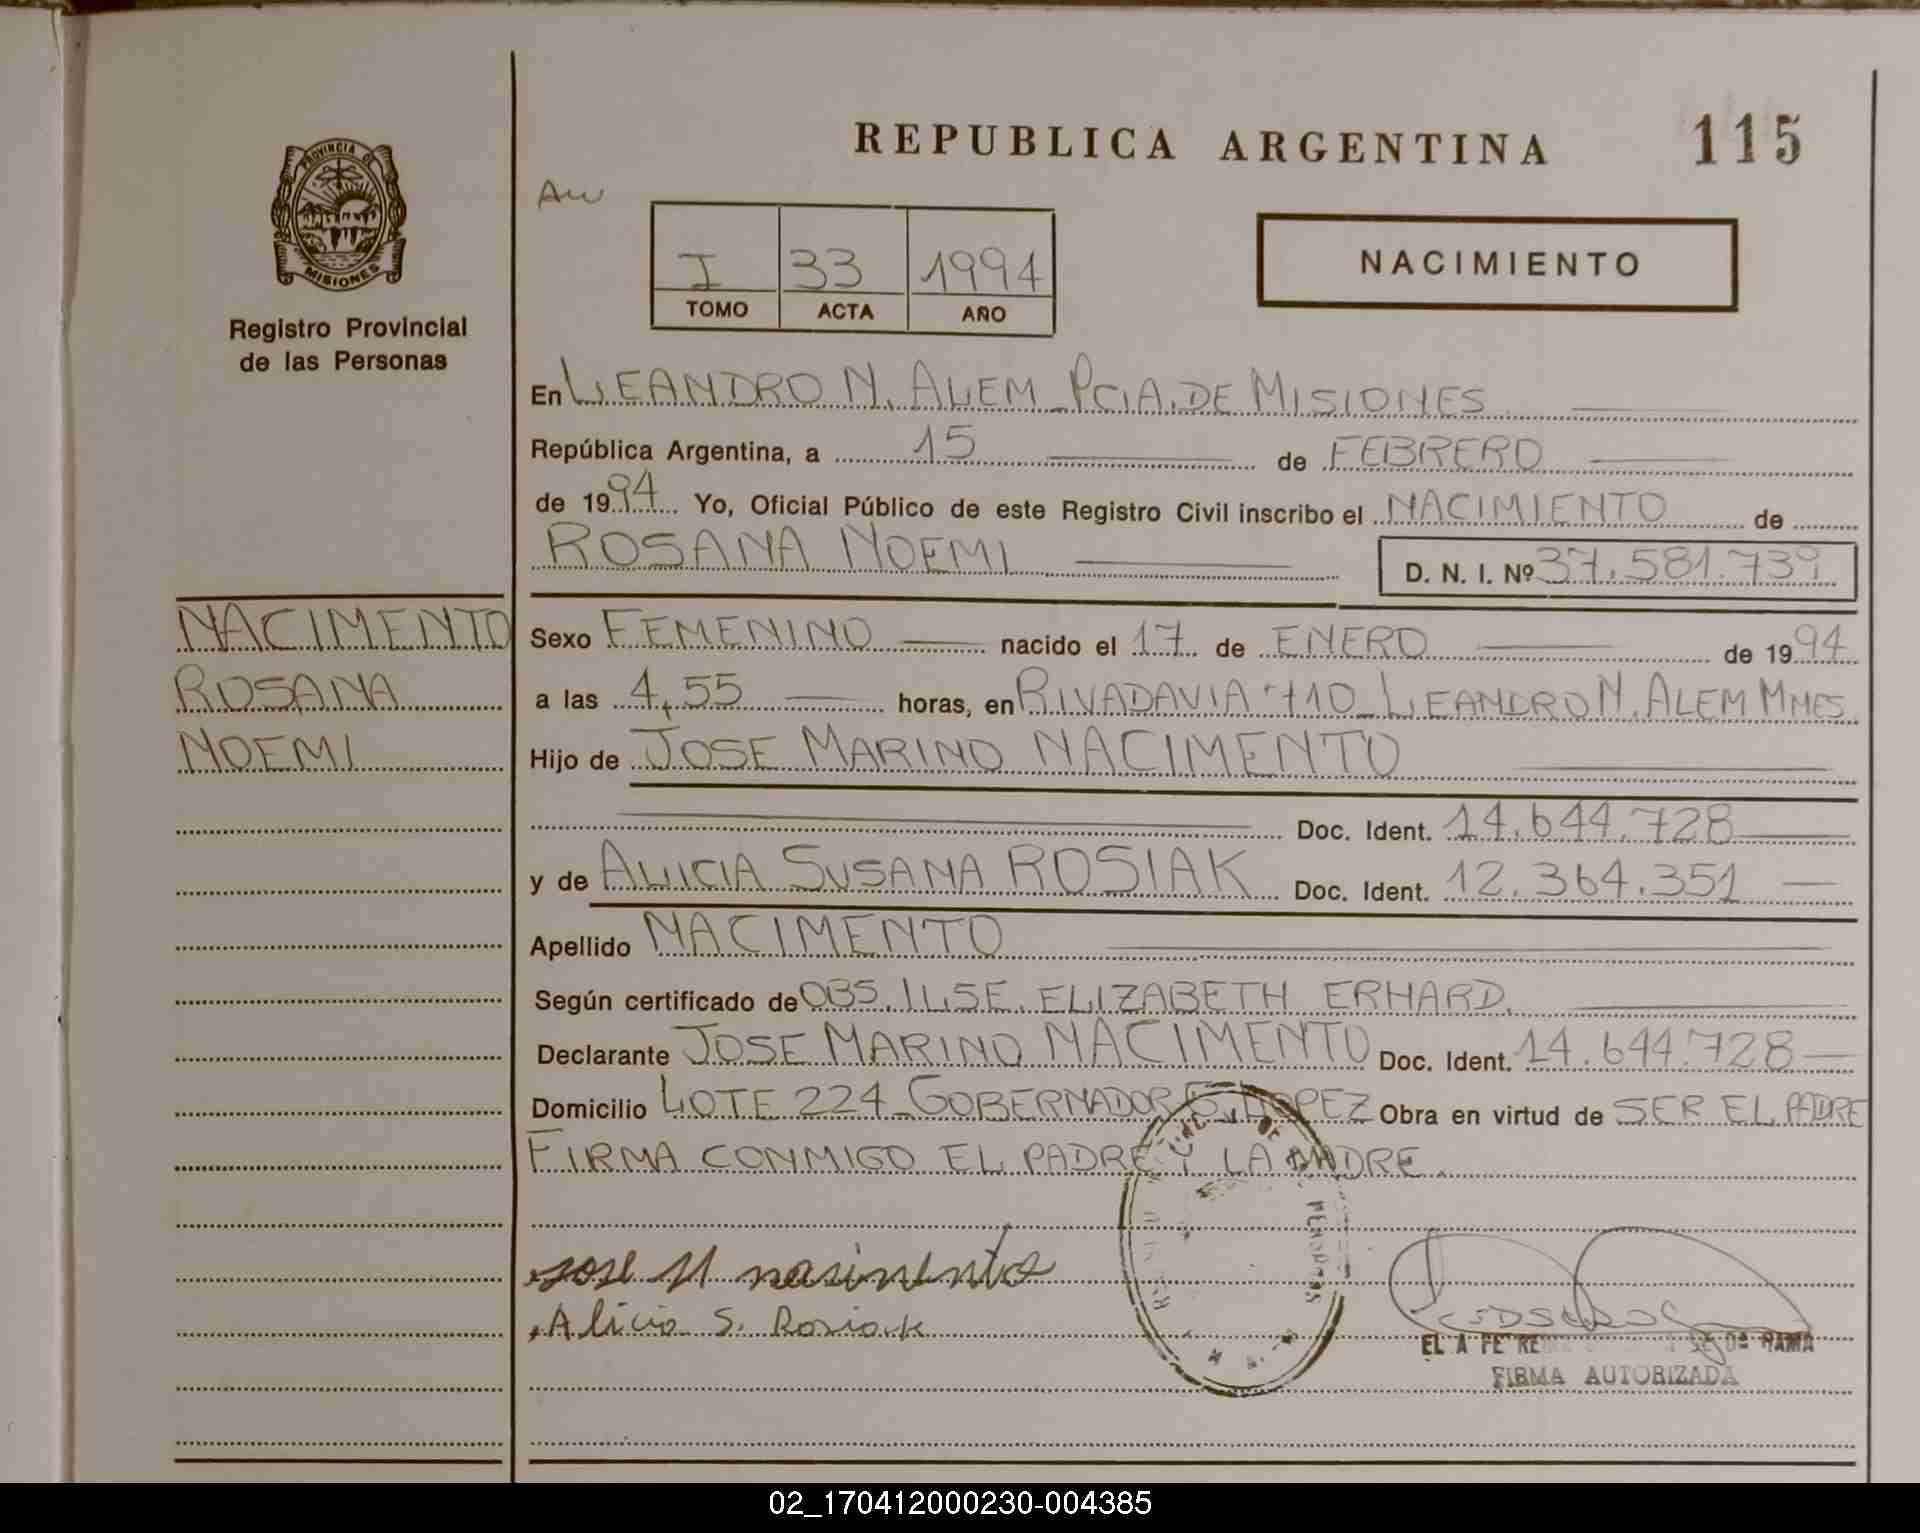 REPUBLICA ARGENTINA
115
PROVINCIA DE
MISIONES
Registro Provincial
de las Personas
I 33 1994
TOMO ACTA AÑO
NACIMIENTO
En LEANDRO N. ALEM PCIA. DE MISIONES
República Argentina, a 15 de FEBRERO
de 1994 Yo, Oficial Público de este Registro Civil inscribo el NACIMIENTO de
ROSANA NOEMI D. N. I. Nº 37.581.739
NACIMENTO
ROSANA
NOEMI
Sexo FEMENINO nacido el 17 de ENERO de 1994
a las 4,55 horas, en RIVADAVIA 710 LEANDRO N. ALEM MNES
Hijo de JOSE MARINO NACIMENTO
Doc. Ident. 14.644.728
y de ALICIA SUSANA ROSIAK Doc. Ident. 12.364.351
Apellido NACIMENTO
Según certificado de OBS. ILSE. ELIZABETH ERHARD.
Declarante JOSE MARINO NACIMENTO Doc. Ident. 14.644.728
Domicilio LOTE 224 GOBERNADOR LOPEZ Obra en virtud de SER EL PADRE
FIRMA CONMIGO EL PADRE Y LA MADRE.
Jose M nasimento
Alicia S. Rosiak
FIRMA AUTORIZADA
02_170412000230-004385